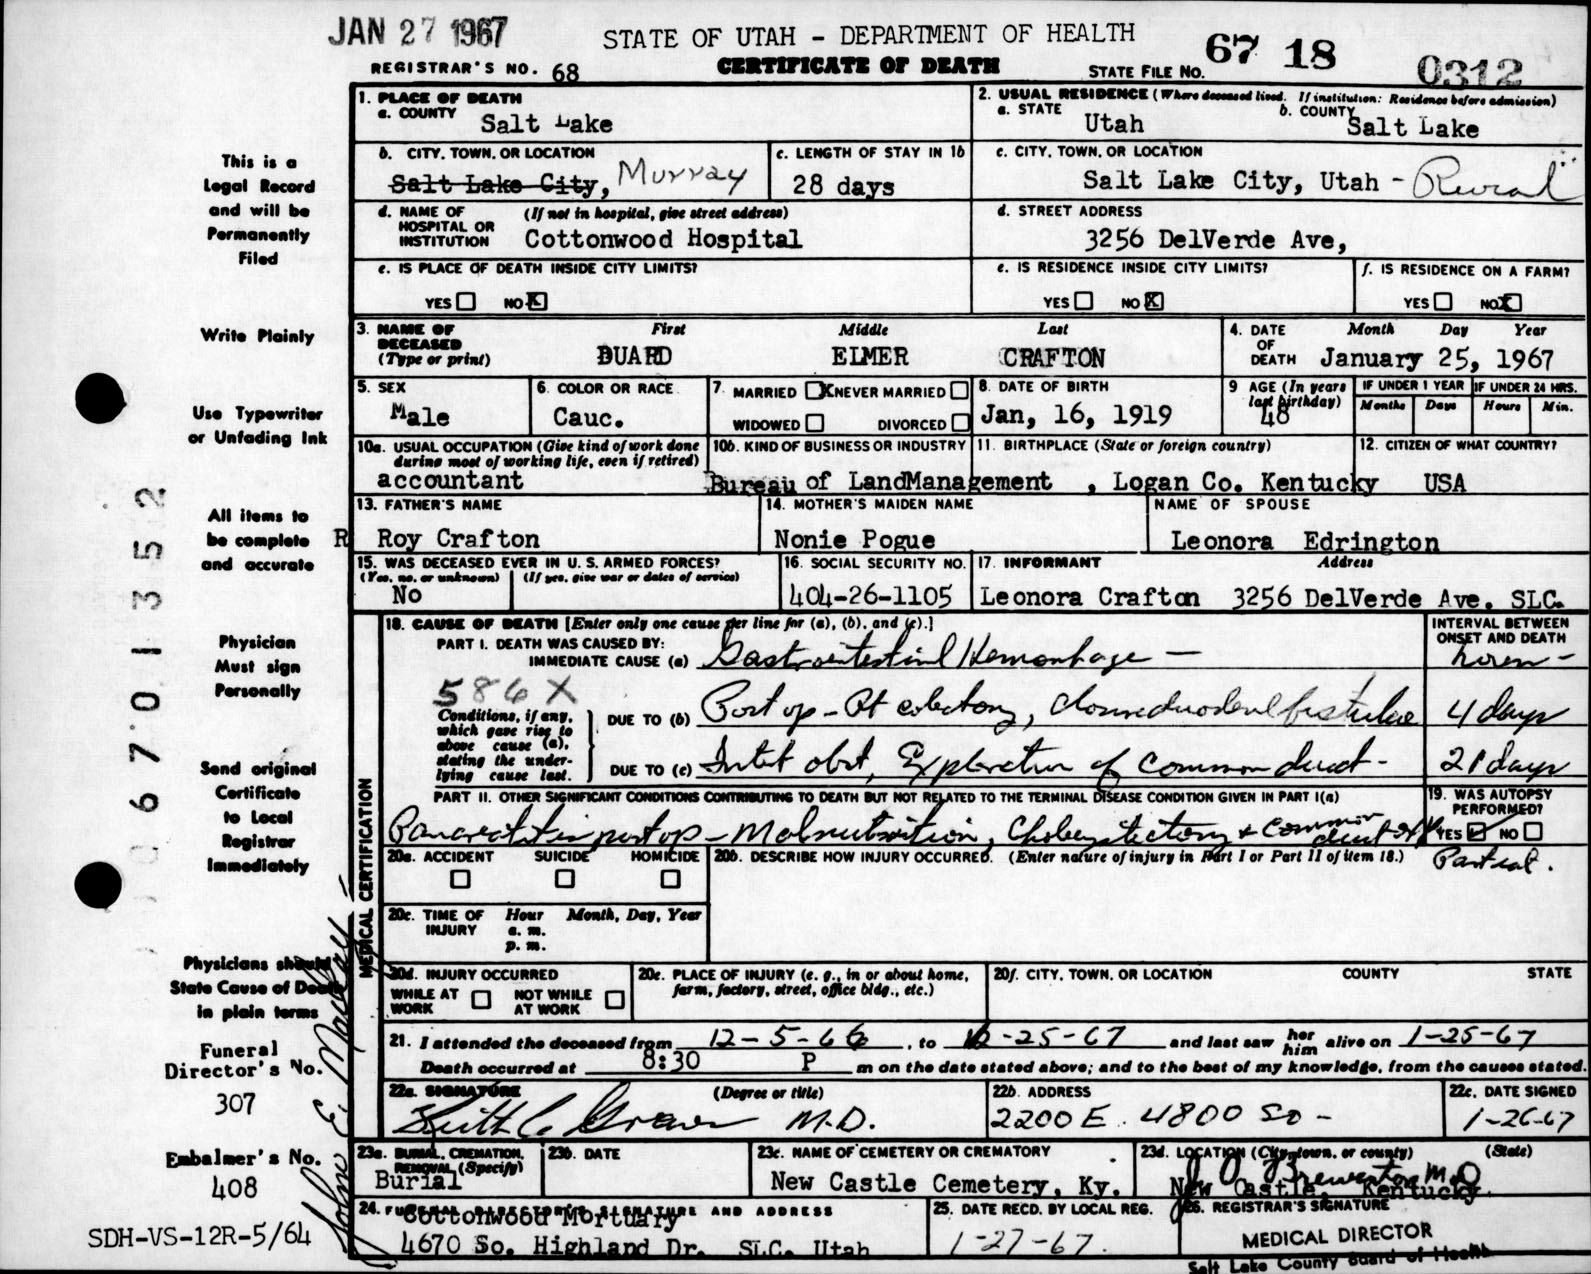 JAN 27 1967
STATE OF UTAH - DEPARTMENT OF HEALTH
CERTIFICATE OF DEATH
REGISTRAR'S NO. 68
STATE FILE NO. 67 18 0312
This is a
Legal Record
and will be
Permanently
Filed
Write Plainly
Use Typewriter
or Unfading Ink
All items to
be complete
and accurate
Physician
Must sign
Personally
Send original
Certificate
to Local
Registrar
Immediately
Physicians should
State Cause of Death
in plain terms
Funeral
Director's No.
307
Embalmer's No.
408
SDH-VS-12R-5/64
067013352
John E.
1. PLACE OF DEATH
a. COUNTY Salt Lake
2. USUAL RESIDENCE (Where deceased lived. If institution: Residence before admission)
a. STATE Utah
b. COUNTY Salt Lake
b. CITY, TOWN, OR LOCATION
Salt Lake City, Murray
c. LENGTH OF STAY IN 1b
28 days
c. CITY, TOWN, OR LOCATION
Salt Lake City, Utah - Rural
d. NAME OF HOSPITAL OR INSTITUTION (If not in hospital, give street address)
Cottonwood Hospital
d. STREET ADDRESS
3256 DelVerde Ave,
e. IS PLACE OF DEATH INSIDE CITY LIMITS?
YES NO X
e. IS RESIDENCE INSIDE CITY LIMITS?
YES NO X
f. IS RESIDENCE ON A FARM?
YES NO X
3. NAME OF DECEASED (Type or print)
First Middle Last
DUARD ELMER CRAFTON
4. DATE OF DEATH
Month Day Year
January 25, 1967
5. SEX
Male
6. COLOR OR RACE
Cauc.
7. MARRIED X NEVER MARRIED
WIDOWED DIVORCED
8. DATE OF BIRTH
Jan, 16, 1919
9 AGE (In years last birthday)
48
IF UNDER 1 YEAR
Months Days
IF UNDER 24 HRS.
Hours Min.
10a. USUAL OCCUPATION (Give kind of work done during most of working life, even if retired)
accountant
10b. KIND OF BUSINESS OR INDUSTRY
Bureau of LandManagement
11. BIRTHPLACE (State or foreign country)
, Logan Co. Kentucky
12. CITIZEN OF WHAT COUNTRY?
USA
13. FATHER'S NAME
R Roy Crafton
14. MOTHER'S MAIDEN NAME
Nonie Pogue
NAME OF SPOUSE
Leonora Edrington
15. WAS DECEASED EVER IN U. S. ARMED FORCES?
(Yes, no, or unknown) (If yes, give war or dates of service)
No
16. SOCIAL SECURITY NO.
404-26-1105
17. INFORMANT Address
Leonora Crafton 3256 DelVerde Ave. SLC.
MEDICAL CERTIFICATION
18. CAUSE OF DEATH [Enter only one cause per line for (a), (b), and (c).]
INTERVAL BETWEEN ONSET AND DEATH
PART I. DEATH WAS CAUSED BY:
IMMEDIATE CAUSE (a) Gastrointestinal Hemorrhage -
586X
Conditions, if any, which gave rise to above cause (a), stating the underlying cause last.
DUE TO (b) Post op - Rt colectomy, closure duodenal fistulae 4 days
DUE TO (c) Intest obst, Exploration of Common duct - 21 days
PART II. OTHER SIGNIFICANT CONDITIONS CONTRIBUTING TO DEATH BUT NOT RELATED TO THE TERMINAL DISEASE CONDITION GIVEN IN PART I(a)
Pancreatitis postop - Malnutrition, Cholecystectomy + Common duct
19. WAS AUTOPSY PERFORMED?
YES NO
Partial.
20a. ACCIDENT SUICIDE HOMICIDE
20b. DESCRIBE HOW INJURY OCCURRED. (Enter nature of injury in Part I or Part II of item 18.)
20c. TIME OF INJURY Hour Month, Day, Year
a. m.
p. m.
20d. INJURY OCCURRED
WHILE AT WORK NOT WHILE AT WORK
20e. PLACE OF INJURY (e. g., in or about home, farm, factory, street, office bldg., etc.)
20f. CITY, TOWN, OR LOCATION COUNTY STATE
21. I attended the deceased from 12-5-66, to -25-67 and last saw her him alive on 1-25-67
Death occurred at 8:30 P m on the date stated above; and to the best of my knowledge, from the causes stated.
22a. SIGNATURE (Degree or title)
Keith M.D.
22b. ADDRESS
2200 E. 4800 So -
22c. DATE SIGNED
1-26-67
23a. BURIAL, CREMATION, REMOVAL (Specify)
Burial
23b. DATE
23c. NAME OF CEMETERY OR CREMATORY
New Castle Cemetery, Ky.
23d. LOCATION (City, town, or county) (State)
New Castle, Kentucky.
24. FUNERAL DIRECTOR'S SIGNATURE AND ADDRESS
Cottonwood Mortuary
4670 So. Highland Dr. SLC. Utah
25. DATE RECD. BY LOCAL REG.
1-27-67.
26. REGISTRAR'S SIGNATURE
M.D.
MEDICAL DIRECTOR
Salt Lake County Board of Health